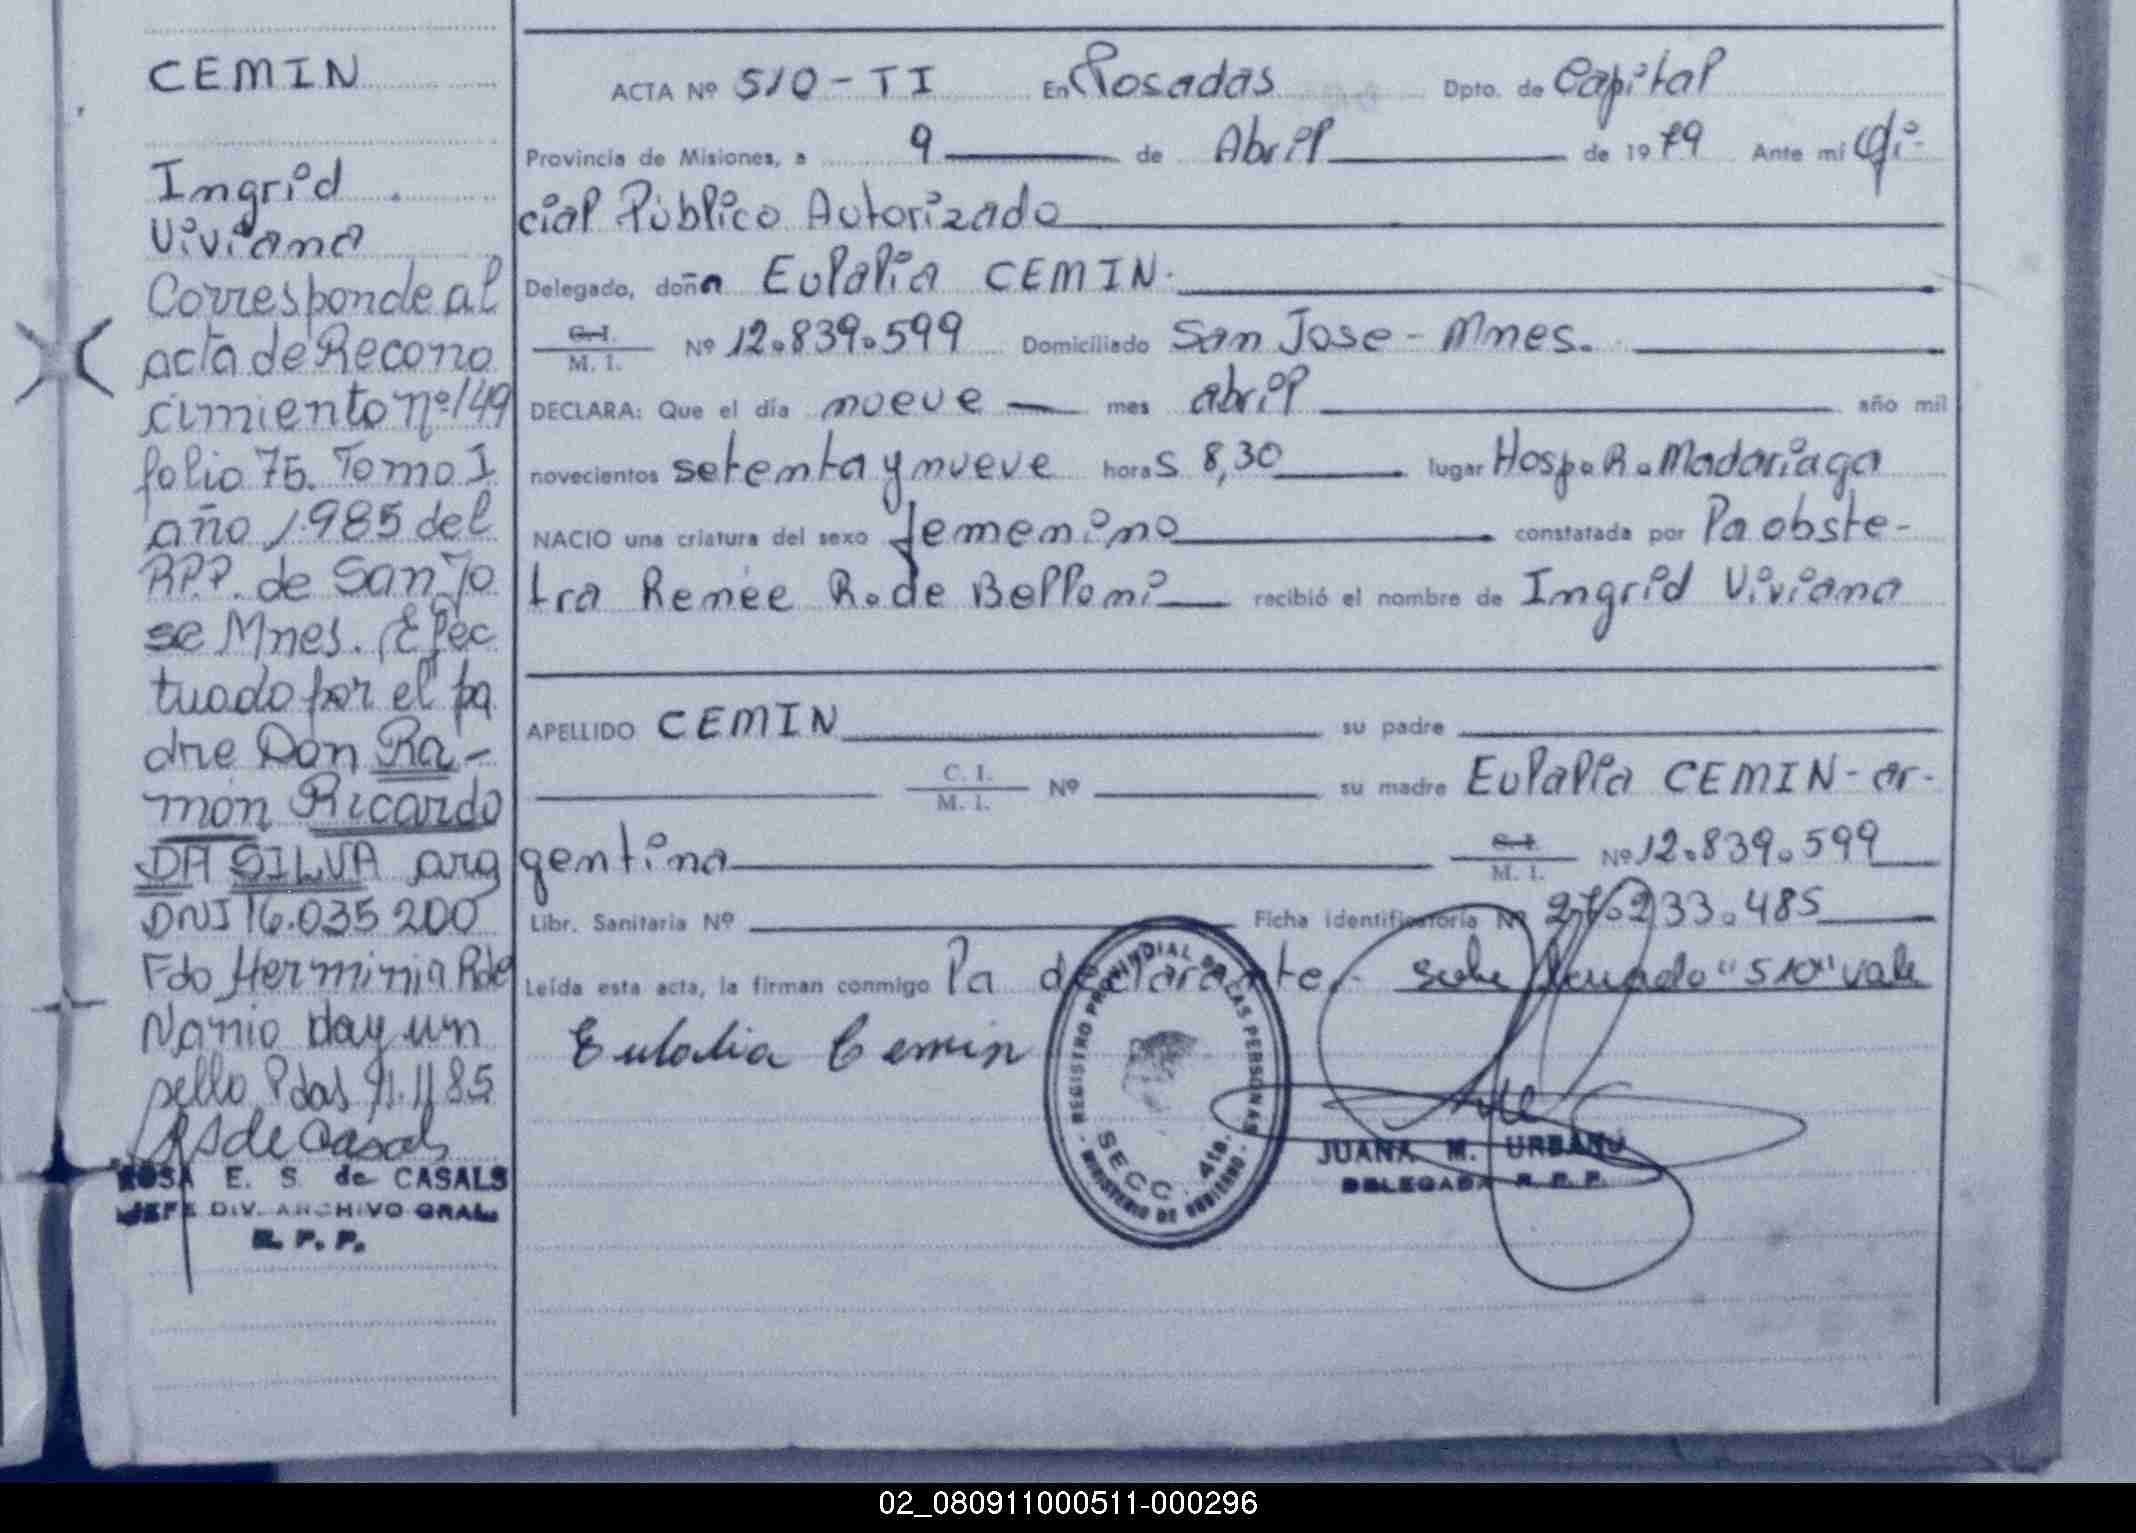 CEMIN
Ingrid
Viviana
Corresponde al
acta de Recono
cimiento nº 149
folio 75. Tomo I
año 1.985 del
R.P.P. de San Jo
se Mnes. Efec
tuado por el pa
dre Don Ra-
món Ricardo
DA SILVA arg
DNI 16.035 200
Fdo Herminia R de
hay un
sello Pdas 11.11 85
RS de Casals
ROSA E. S. de CASALS
JEFE DIV. ARCHIVO GRAL.
R. P. P.
ACTA Nº 510 - TI En Posadas Dpto. de Capital
Provincia de Misiones, a 9 de Abril de 1979 Ante mi Ofi-
cial Público Autorizado
Delegado, doña Eulalia CEMIN.
C.I. M. I. Nº 12.839.599 Domiciliado San Jose - Mnes.
DECLARA: Que el día nueve mes abril año mil
novecientos setenta y nueve horas 8,30 lugar Hosp. R. Madariaga
NACIO una criatura del sexo femenino constatada por la obste-
tra Renée R. de Belloni recibió el nombre de Ingrid Viviana
APELLIDO CEMIN su padre
C. I. M. I. Nº su madre Eulalia CEMIN - ar-
gentina C.I. M. I. Nº 12.839.599
Libr. Sanitaria Nº Ficha identificatoria Nº 27.233.485
Leída esta acta, la firman conmigo la declarante.- sobre "510" vale
Eulalia Cemin
REGISTRO PROVINCIAL DE LAS PERSONAS
SECC. 4ta.
- MINISTERIO DE GOBIERNO -
JUANA M. URBANO
DELEGADA R. P. P.
02_080911000511-000296